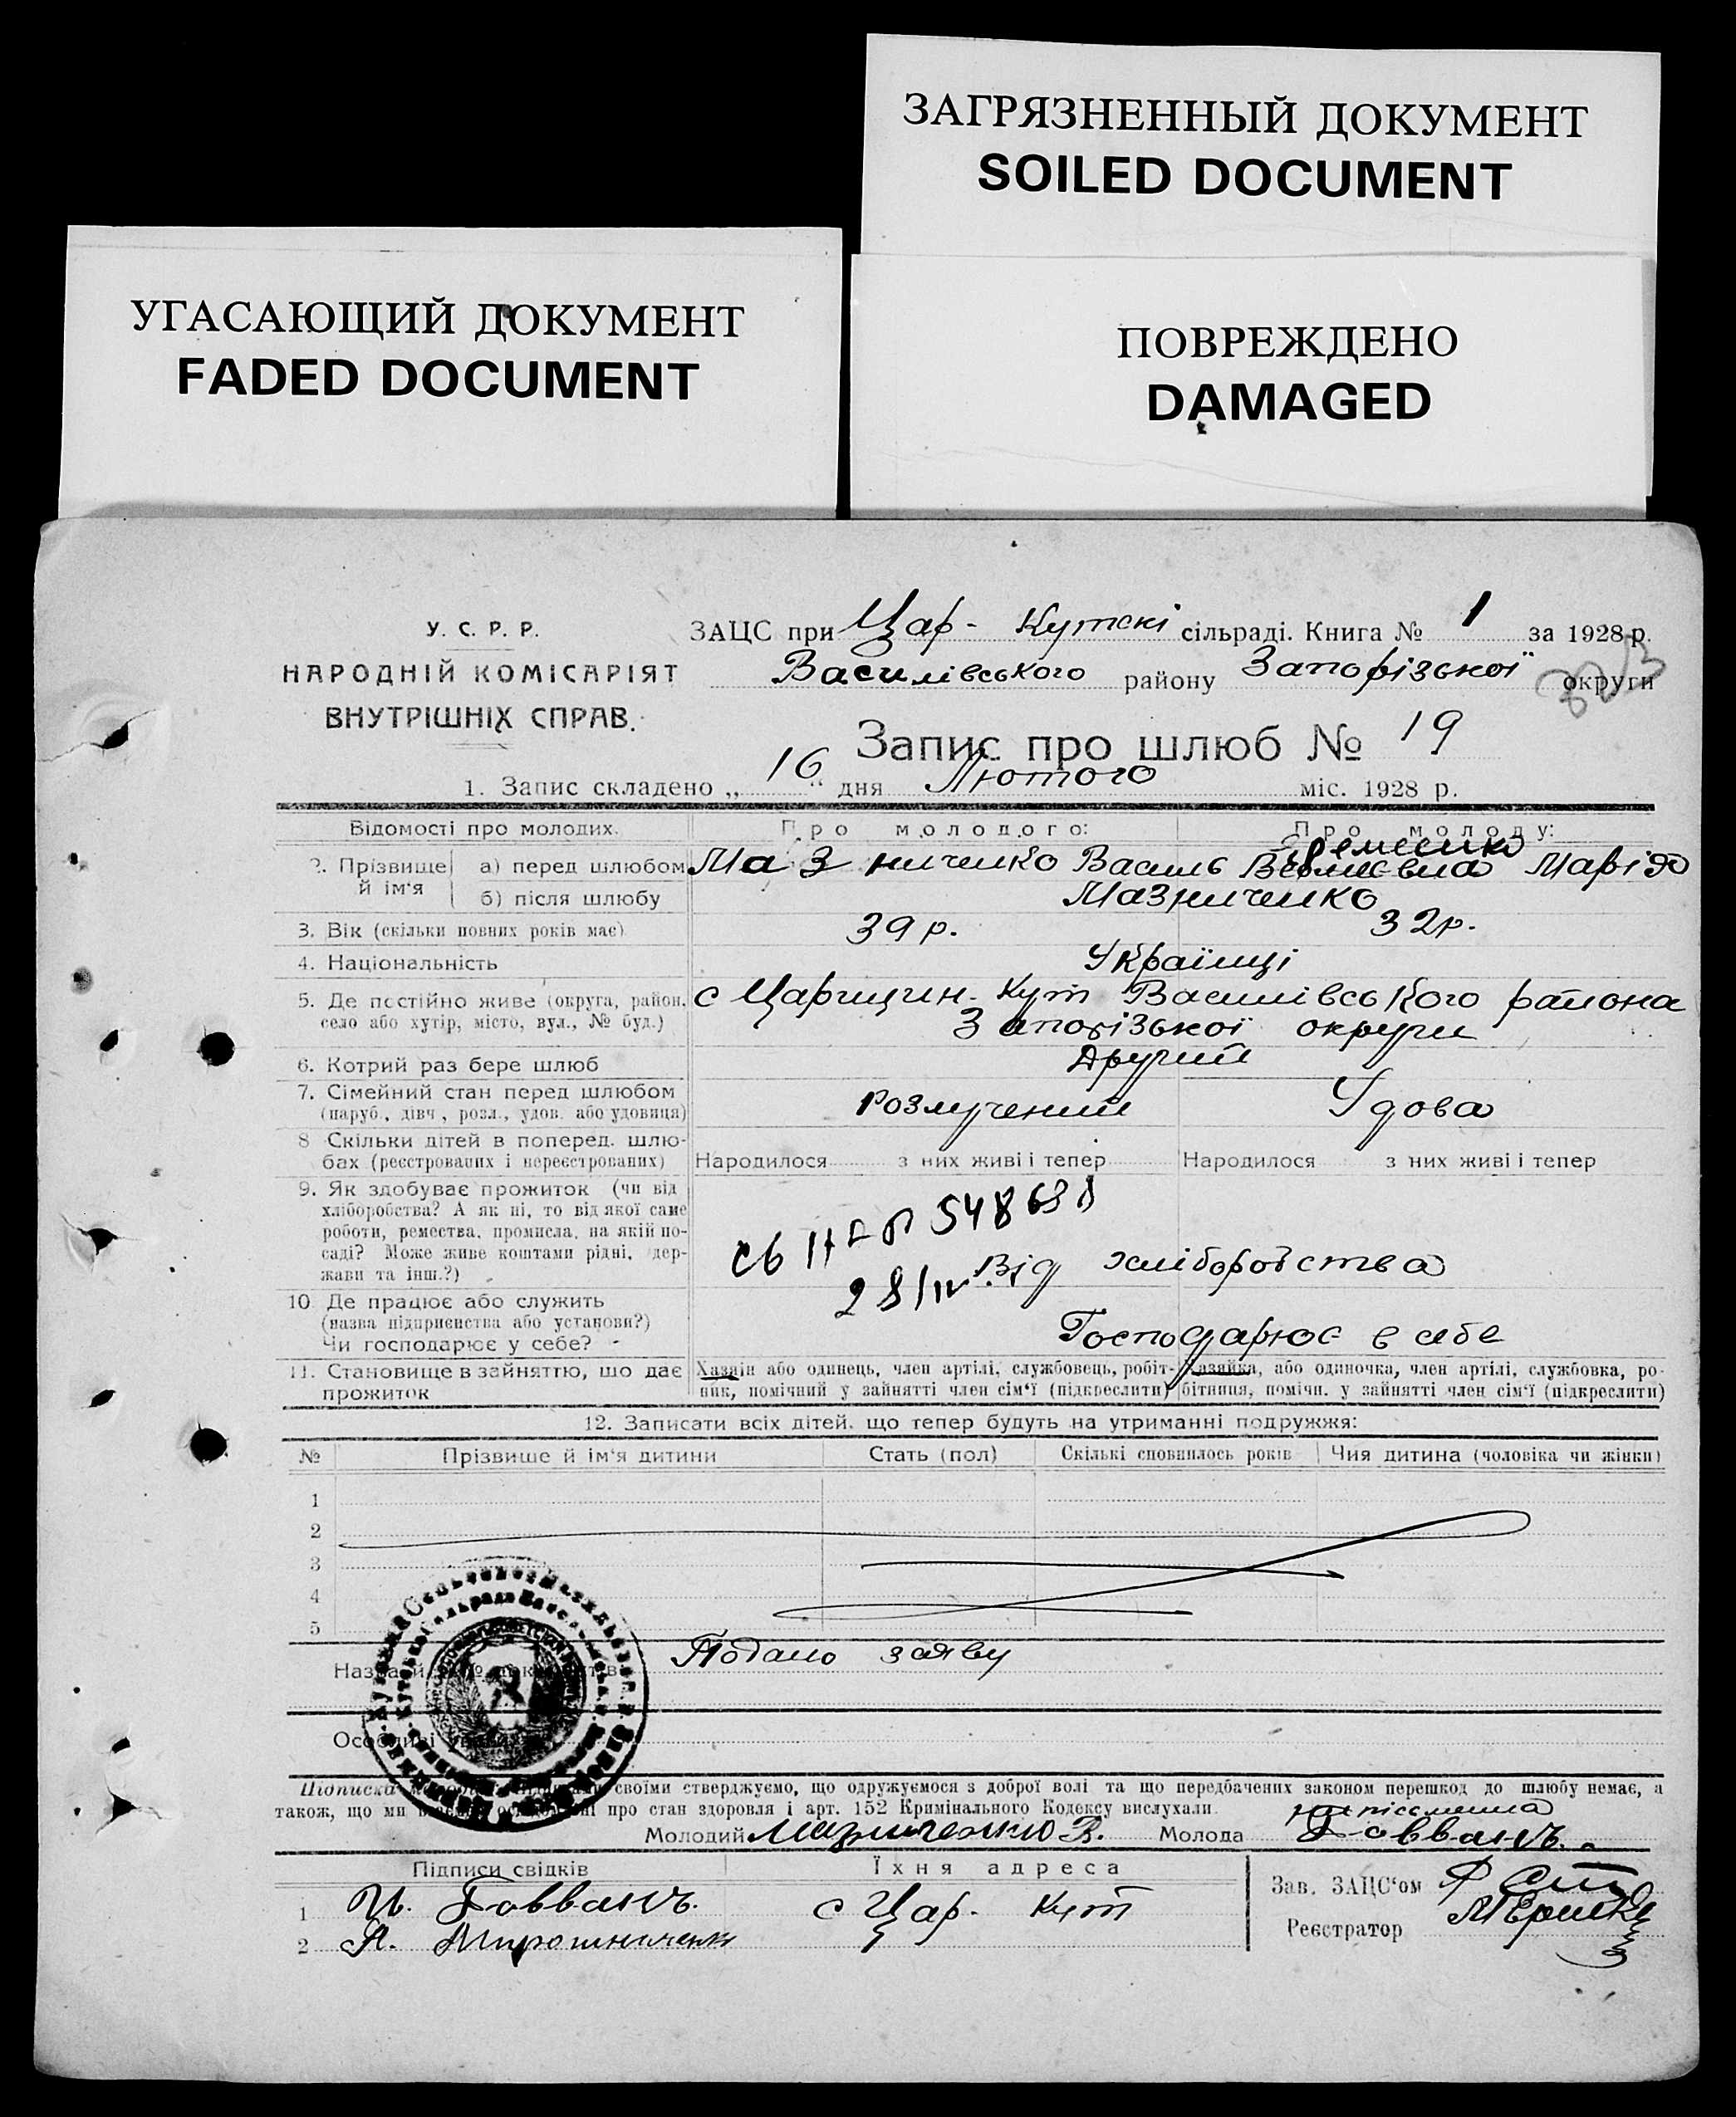 ЗАГРЯЗНЕННЫЙ ДОКУМЕНТ
SOILED DOCUMENT
УГАСАЮЩИЙ ДОКУМЕНТ
FADED DOCUMENT
ПОВРЕЖДЕНО
DAMAGED
У. С. Р. Р.
НАРОДНІЙ КОМІСАРІЯТ
ВНУТРІШНІХ СПРАВ.
ЗАЦС при Цар- Кутскі сільраді. Книга № 1 за 1928 р.
Василівського району Запорізької округи
Запис про шлюб № 19
1. Запис складено „ 16 “ дня Лютого міс. 1928 р.
Відомості про молодих. Про молодого: Про молоду:
2. Прізвище й ім'я а) перед шлюбом Мазниченко Василь Марія
б) після шлюбу Мазниченко
3. Вік (скільки повних років має) 39 р. 32 р.
4. Національність Українці
5. Де постійно живе (округа, район, с Царицин-Кут Василівського района
село або хутір, місто, вул., № буд.) Запорізької округи
6. Котрий раз бере шлюб Другий
7. Сімейний стан перед шлюбом
(паруб., дівч., розл., удов. або удовиця) Розлучений Удова
8 Скільки дітей в поперед. шлю-
бах (реєстрованих і нереєстрованих) Народилося з них живі і тепер Народилося з них живі і тепер
9. Як здобуває прожиток (чи від
хліборобства? А як ні, то від якої саме
роботи, ремества, промисла, на якій по-
саді? Може живе коштами рідні, дер-
жави та інш.?) Від хліборобства
548638
28/IV
10 Де працює або служить
(назва підприємства або установи?)
Чи господарює у себе? Господарює в себе
11. Становище в зайняттю, що дає
прожиток
Хазяїн або одинець, член артілі, службовець, робіт-
ник, помічний у зайнятті член сім'ї (підкреслити)
Хазяйка, або одиночка, член артілі, службовка, ро-
бітниця, помічн. у зайнятті член сім'ї (підкреслити)
12. Записати всіх дітей, що тепер будуть на утриманні подружжя:
№ Прізвище й ім'я дитини Стать (пол) Скількі сповнилось років Чия дитина (чоловіка чи жінки)
1
2
3
4
5
Подано заяву
Підписка своїми стверджуємо, що одружуємося з доброї волі та що передбачених законом перешкод до шлюбу немає, а
також, що ми про стан здоровля і арт. 152 Кримінального Кодексу вислухали.
Молодий Мазниченко В. Молода Говвань
Підписи свідків Їхня адреса
1 И. Говвань. с Цар- Кут
2 А. Мирошниченко
Зав. ЗАЦС'ом
Реєстратор